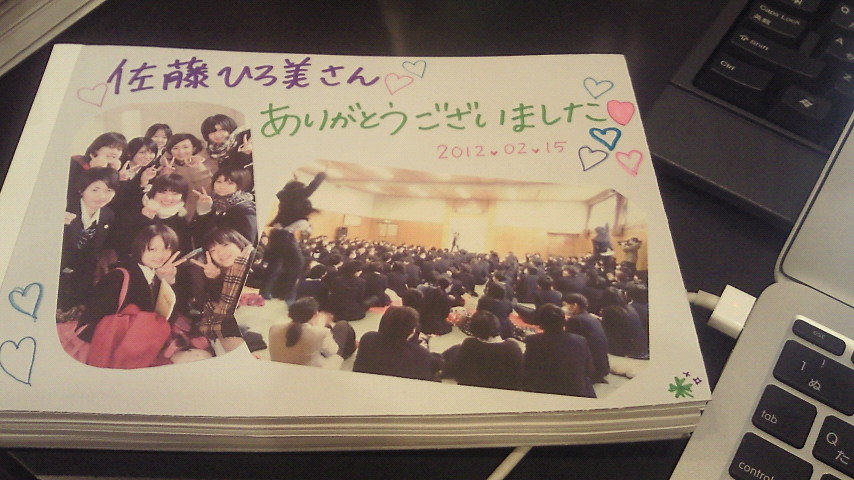 佐藤ひろ美さん
ありがとうございました
2012♥02♥15
Caps Lock
英数
Shift
Ctrl
A
Z
esc
!
1 ぬ
tab
Q
た
control